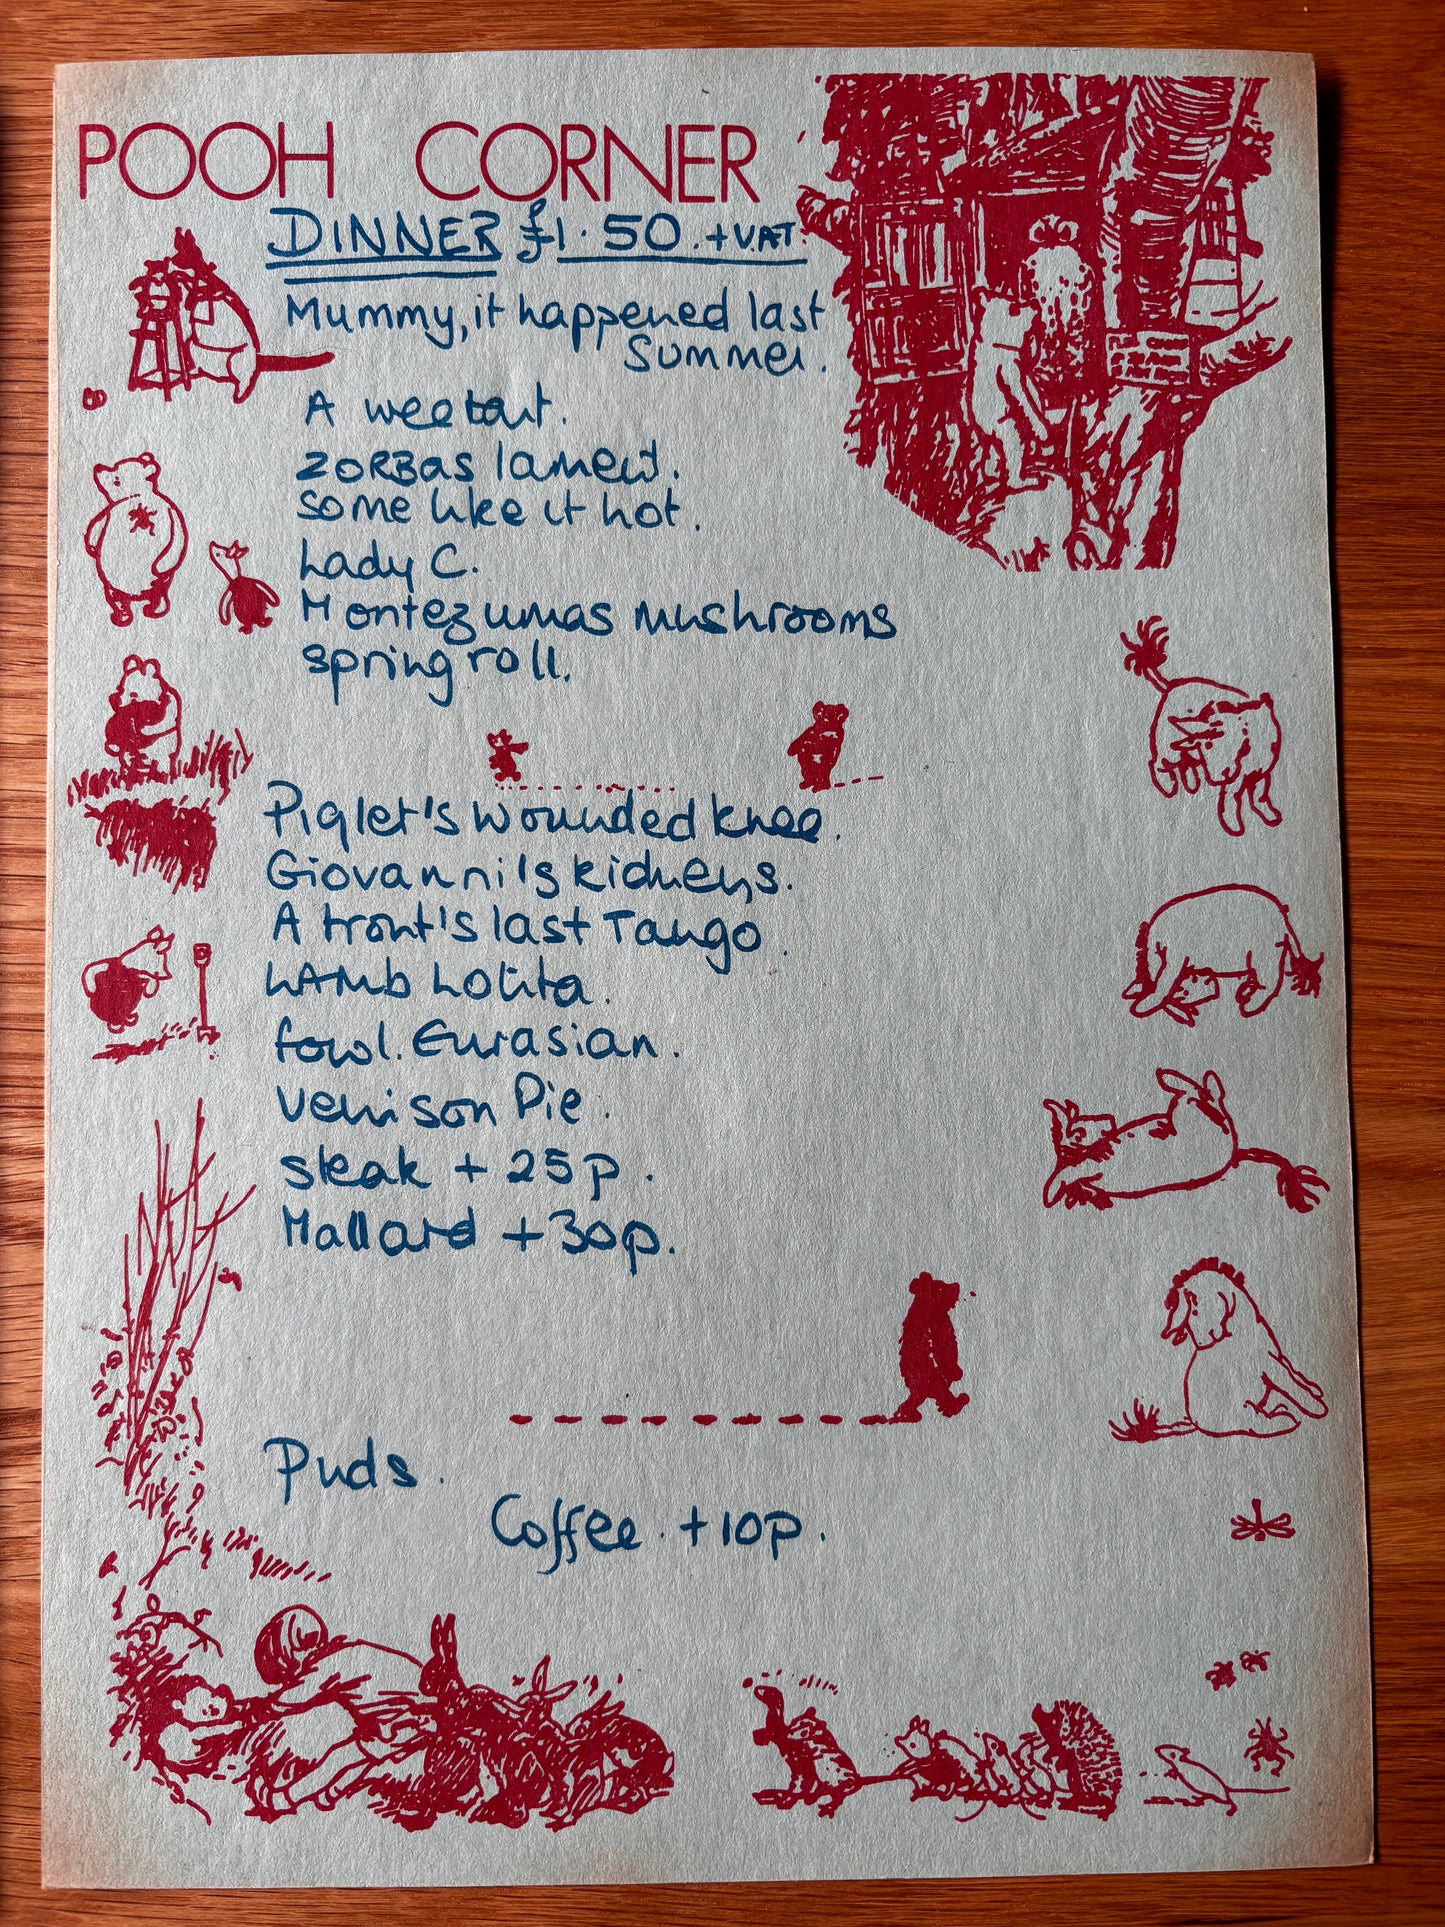 POOH CORNER
DINNER £1.50.+VAT.
Mummy, it happened last
summer.
A wee tart.
ZORBas lament.
some like it hot.
Lady C.
Montezumas mushrooms
spring roll.
Piglet's wounded knee.
Giovanni's kidneys.
A trout's last Tango.
LAMb Lolita.
fowl. Eurasian.
Venison Pie.
steak + 25p.
Mallard + 30p.
Puds.
Coffee. +10p.